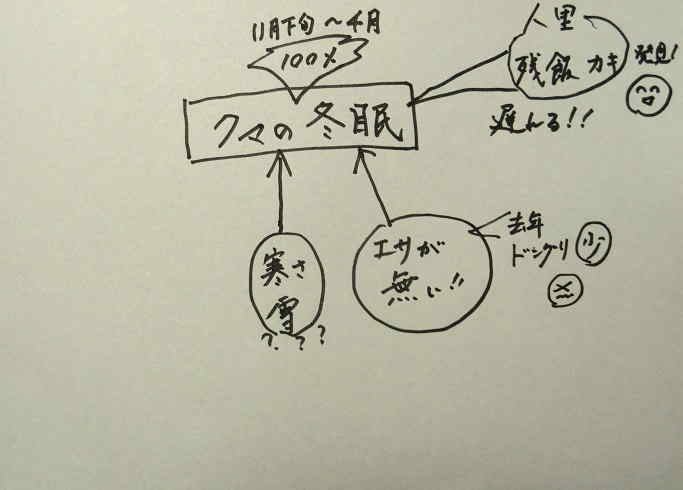 11月下旬〜4月
100%
クマの冬眠
里
残飯 カキ
発見!
遅れる!!
寒さ
雪
? ? ?
エサが
無い!!
去年
ドングリ 少